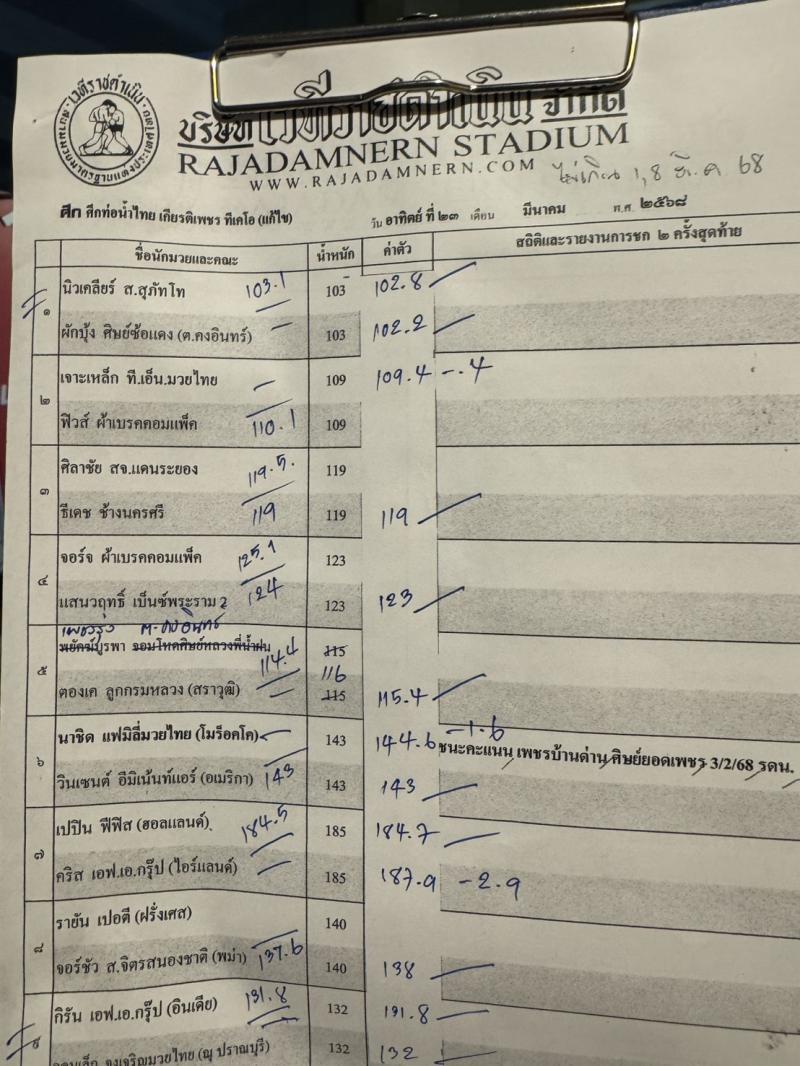 เวทีราชดำเนิน
บริษัทเวทีราชดำเนิน จำกัด
RAJADAMNERN STADIUM
WWW.RAJADAMNERN.COM
ไม่เกิน 1,8 มี.ค 68
ศึก ศึกท่อน้ำไทย เกียรติเพชร ทีเคโอ (แก้ไข) วัน อาทิตย์ ที่ ๒๓ เดือน มีนาคม พ.ศ. ๒๕๖๘
ชื่อนักมวยและคณะ น้ำหนัก ค่าตัว สถิติและรายงานการชก ๒ ครั้งสุดท้าย
๑ นิวเคลียร์ ส.สุภัทโท 103.1 103 102.8
ผักบุ้ง ศิษย์ซ้อแดง (ต.คงอินทร์) 103 102.2
๒ เจาะเหล็ก ที.เอ็น.มวยไทย 109 109.4 -.4
ฟิวส์ ผ้าเบรคคอมแพ็ค 110.1 109
๓ ศิลาชัย สจ.แดนระยอง 119.5 119
ธีเดช ช้างนครศรี 119 119 119
๔ จอร์จ ผ้าเบรคคอมแพ็ค 125.1 123
แสนวฤทธิ์ เบ็นซ์พระราม 2 124 123 123
เพชรรุ่ง ต.คงอินทร์
๕ พยัคฆ์บูรพา จอมโหดศิษย์หลวงพี่น้ำฝน 114.4 115
116
ตองเค ลูกกรมหลวง (สราวุฒิ) 115 115.4
๖ นาชิด แฟมิลี่มวยไทย (โมร็อคโค) 143 144.6 -1.6 ชนะคะแนน เพชรบ้านด่าน ศิษย์ยอดเพชร 3/2/68 รดน.
วินเซนต์ อีมิเน้นท์แอร์ (อเมริกา) 143 143 143
๗ เปปิน ฟีฟิส (ฮอลแลนด์) 184.5 185 184.7
คริส เอฟ.เอ.กรุ๊ป (ไอร์แลนด์) 185 187.9 -2.9
๘ รายัน เปอตี (ฝรั่งเศส) 140
จอร์ชัว ส.จิตรสนองชาติ (พม่า) 137.6 140 138
๙ กิรัน เอฟ.เอ.กรุ๊ป (อินเดีย) 131.8 132 131.8
จงเจริญมวยไทย (ณุ ปราณบุรี) 132 132